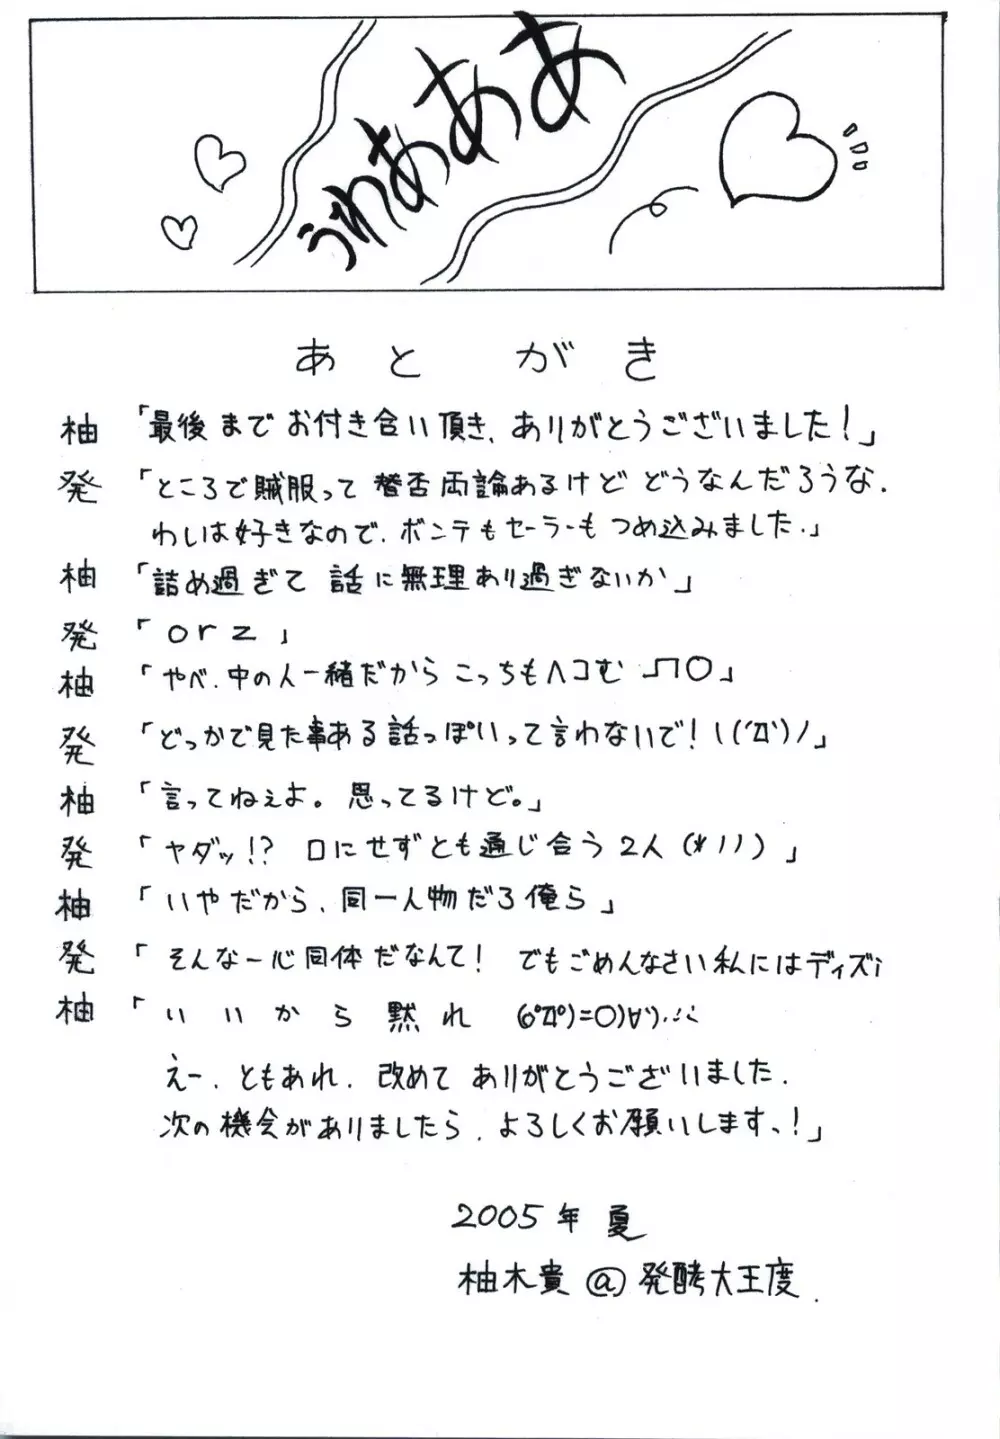 うわあああ
あとがき
柚「最後までお付き合い頂き、ありがとうございました!」
発「ところで賊服って賛否両論あるけどどうなんだろうな.
わしは好きなので、ボンテもセーラーもつめ込みました.」
柚「詰め過ぎて話に無理あり過ぎないか」
発「orz」
柚「やべ、中の人一緒だからこっちもヘコむ _| ̄|○」
発「どっかで見た事ある話っぽいって言わないで!ヽ(´Д`)ノ」
柚「言ってねぇよ。思ってるけど。」
発「ヤダッ!? 口にせずとも通じ合う2人(*ノノ)」
柚「いやだから、同一人物だろ俺ら」
発「そんな一心同体だなんて! でもごめんなさい私にはディズi
柚「いいから黙れ (o゚Д゚)=O)∀`)..:.:
えー、ともあれ、改めてありがとうございました.
次の機会がありましたら、よろしくお願いします、!」
2005年 夏
柚木貴@発酵大王度.